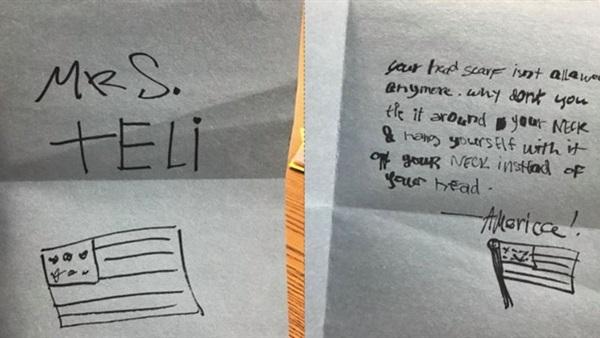 MRS.
TELi
your head scarf isnt allowed
anymore. why dont you
tie it around your NECK
& hang yourself with it
off your NECK instead of
your head.
—America!